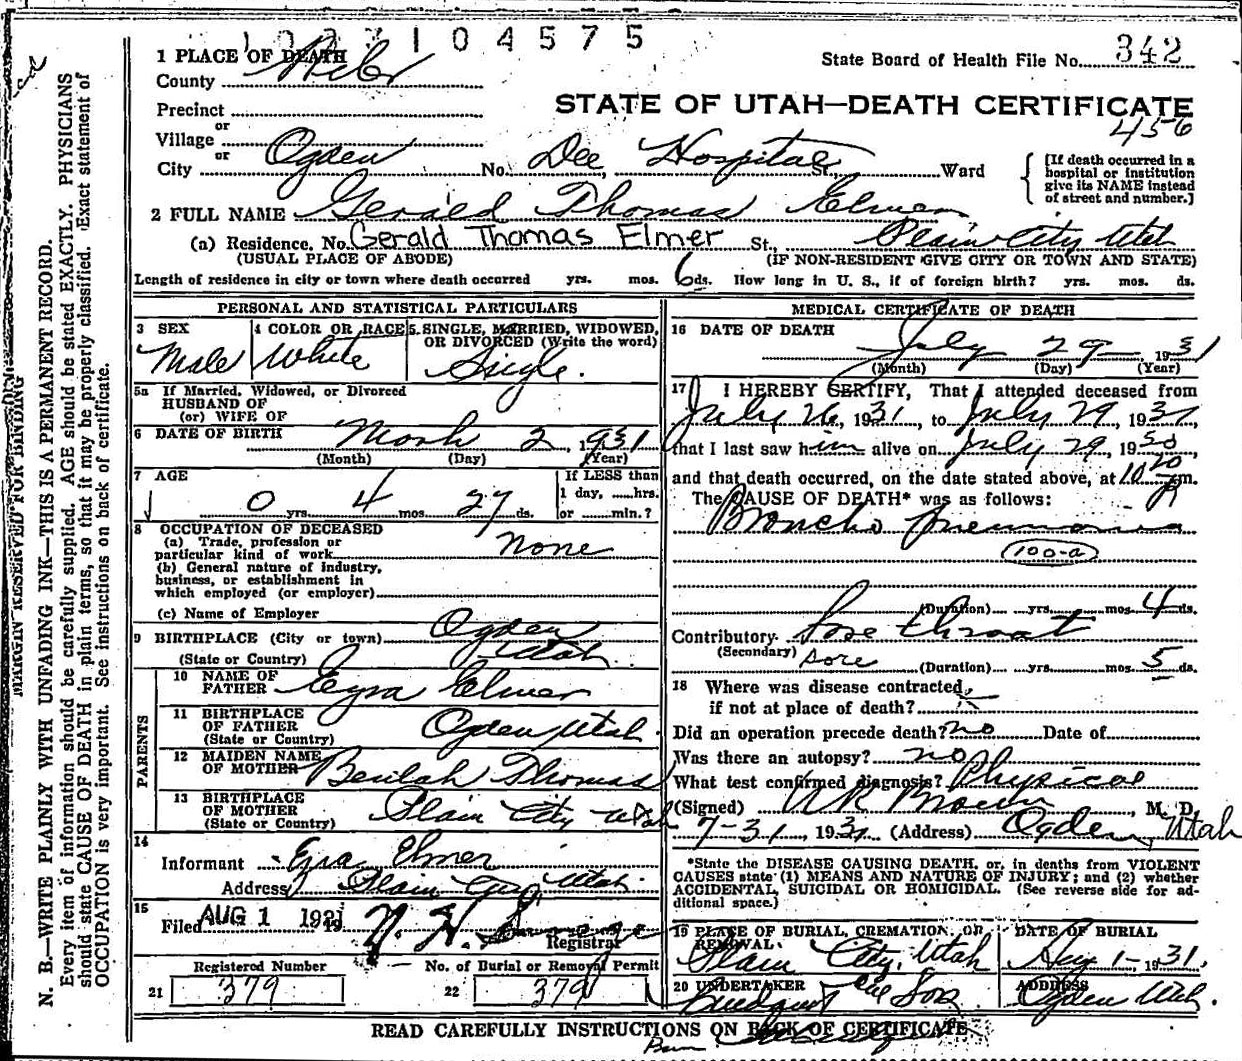 1 PLACE OF DEATH 104575
State Board of Health File No. 342
County Weber
STATE OF UTAH—DEATH CERTIFICATE
456
Precinct
or
Village
or
City Ogden No. Dee Hospital St., Ward
[If death occurred in a hospital or institution give its NAME instead of street and number.]
2 FULL NAME Gerald Thomas Elmer
(a) Residence. No. Gerald Thomas Elmer St., Plain City Utah
(USUAL PLACE OF ABODE) (IF NON-RESIDENT GIVE CITY OR TOWN AND STATE)
Length of residence in city or town where death occurred yrs. mos. 6 ds. How long in U. S., if of foreign birth? yrs. mos. ds.
PERSONAL AND STATISTICAL PARTICULARS
3 SEX 4 COLOR OR RACE 5. SINGLE, MARRIED, WIDOWED,
OR DIVORCED (Write the word)
Male White Single.
5a If Married, Widowed, or Divorced
HUSBAND OF
(or) WIFE OF
6 DATE OF BIRTH March 2, 1931
(Month) (Day) (Year)
7 AGE If LESS than
0 yrs. 4 mos. 27 ds. 1 day, hrs.
or min.?
8 OCCUPATION OF DECEASED
(a) Trade, profession or
particular kind of work None
(b) General nature of industry,
business, or establishment in
which employed (or employer)
(c) Name of Employer
9 BIRTHPLACE (City or town) Ogden
(State or Country) Utah
PARENTS
10 NAME OF
FATHER Ezra Elmer
11 BIRTHPLACE
OF FATHER Ogden Utah
(State or Country)
12 MAIDEN NAME
OF MOTHER Beulah Thomas
13 BIRTHPLACE
OF MOTHER Plain City Utah
(State or Country)
14
Informant Ezra Elmer
Address Plain City Utah
15
Filed AUG 1 1931
Registrar
Registered Number No. of Burial or Removal Permit
21 379 22 379
MEDICAL CERTIFICATE OF DEATH
16 DATE OF DEATH
July 29, 1931
(Month) (Day) (Year)
17 I HEREBY CERTIFY, That I attended deceased from
July 26, 1931, to July 29, 1931,
that I last saw him alive on July 29, 1930
and that death occurred, on the date stated above, at 10 20 P m.
The CAUSE OF DEATH* was as follows:
Broncho Pneumonia
100-a
(Duration) yrs. mos. 4 ds.
Contributory Sore throat
(Secondary) sore (Duration) yrs. mos. 5 ds.
18 Where was disease contracted,
if not at place of death?
Did an operation precede death? no Date of
Was there an autopsy? no
What test confirmed diagnosis? Physical
(Signed) M. D.
7-31, 1931 (Address) Ogden, Utah
*State the DISEASE CAUSING DEATH, or, in deaths from VIOLENT
CAUSES state (1) MEANS AND NATURE OF INJURY; and (2) whether
ACCIDENTAL, SUICIDAL OR HOMICIDAL. (See reverse side for ad-
ditional space.)
19 PLACE OF BURIAL, CREMATION, OR DATE OF BURIAL
REMOVAL.
Plain City, Utah Aug 1-, 1931.
20 UNDERTAKER ADDRESS
Sons Ogden Utah.
READ CAREFULLY INSTRUCTIONS ON BACK OF CERTIFICATE
MARGIN RESERVED FOR BINDING
N. B.—WRITE PLAINLY WITH UNFADING INK—THIS IS A PERMANENT RECORD.
Every item of information should be carefully supplied. AGE should be stated EXACTLY. PHYSICIANS
should state CAUSE OF DEATH in plain terms, so that it may be properly classified. Exact statement of
OCCUPATION is very important. See instructions on back of certificate.